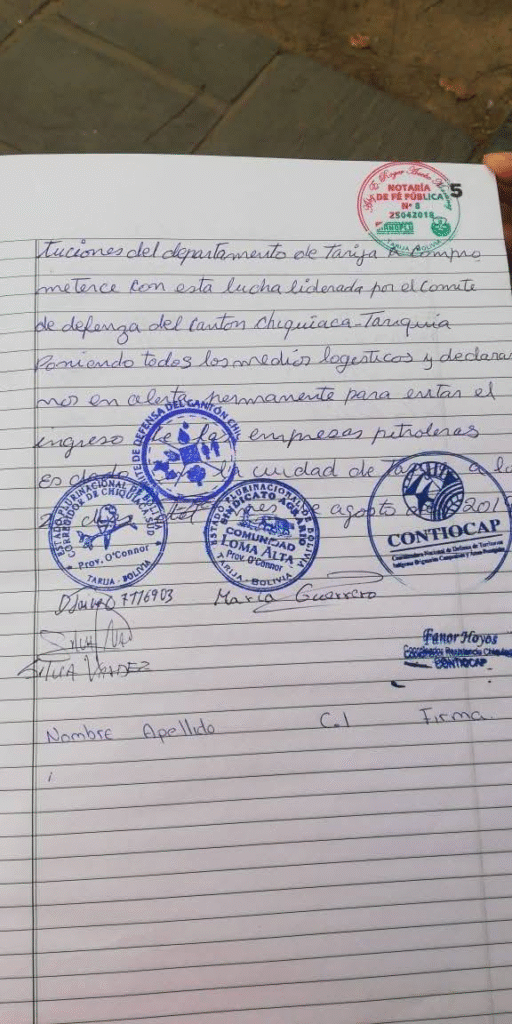 NOTARÍA
DE FÉ PÚBLICA
Nº 8
25042018
TARIJA - BOLIVIA
5
tuciones del departamento de Tarija a compro
meterce con esta lucha liderada por el comite
de defenza del canton chiquiaca-Tariquia
Poniendo todos los medios logesticos y declara
mos en alerta permanente para evitar el
ingreso de las empresas petroleras
es dado en la ciudad de a lo
de agosto
COMITE DE DEFENSA DEL CANTÓN CHI
ESTADO PLURINACIONAL DE BOLIVIA
CORREGIDOR DE CHIQUIACA SUD
Prov. O'Connor
TARIJA - BOLIVIA
ESTADO PLURINACIONAL DE BOLIVIA
SINDICATO AGRARIO
COMUNIDAD
LOMA ALTA
Prov. O'Connor
TARIJA - BOLIVIA
CONTIOCAP
Coordinadora Nacional de Defensa de Territorios
Indígenas Originarios Campesinos y Áreas Protegidas
7116903
Maria Guerrero
SILVIA VALDEZ
Fanor Hoyos
Resistencia
CONTIOCAP
Nombre Apellido C.I Firma